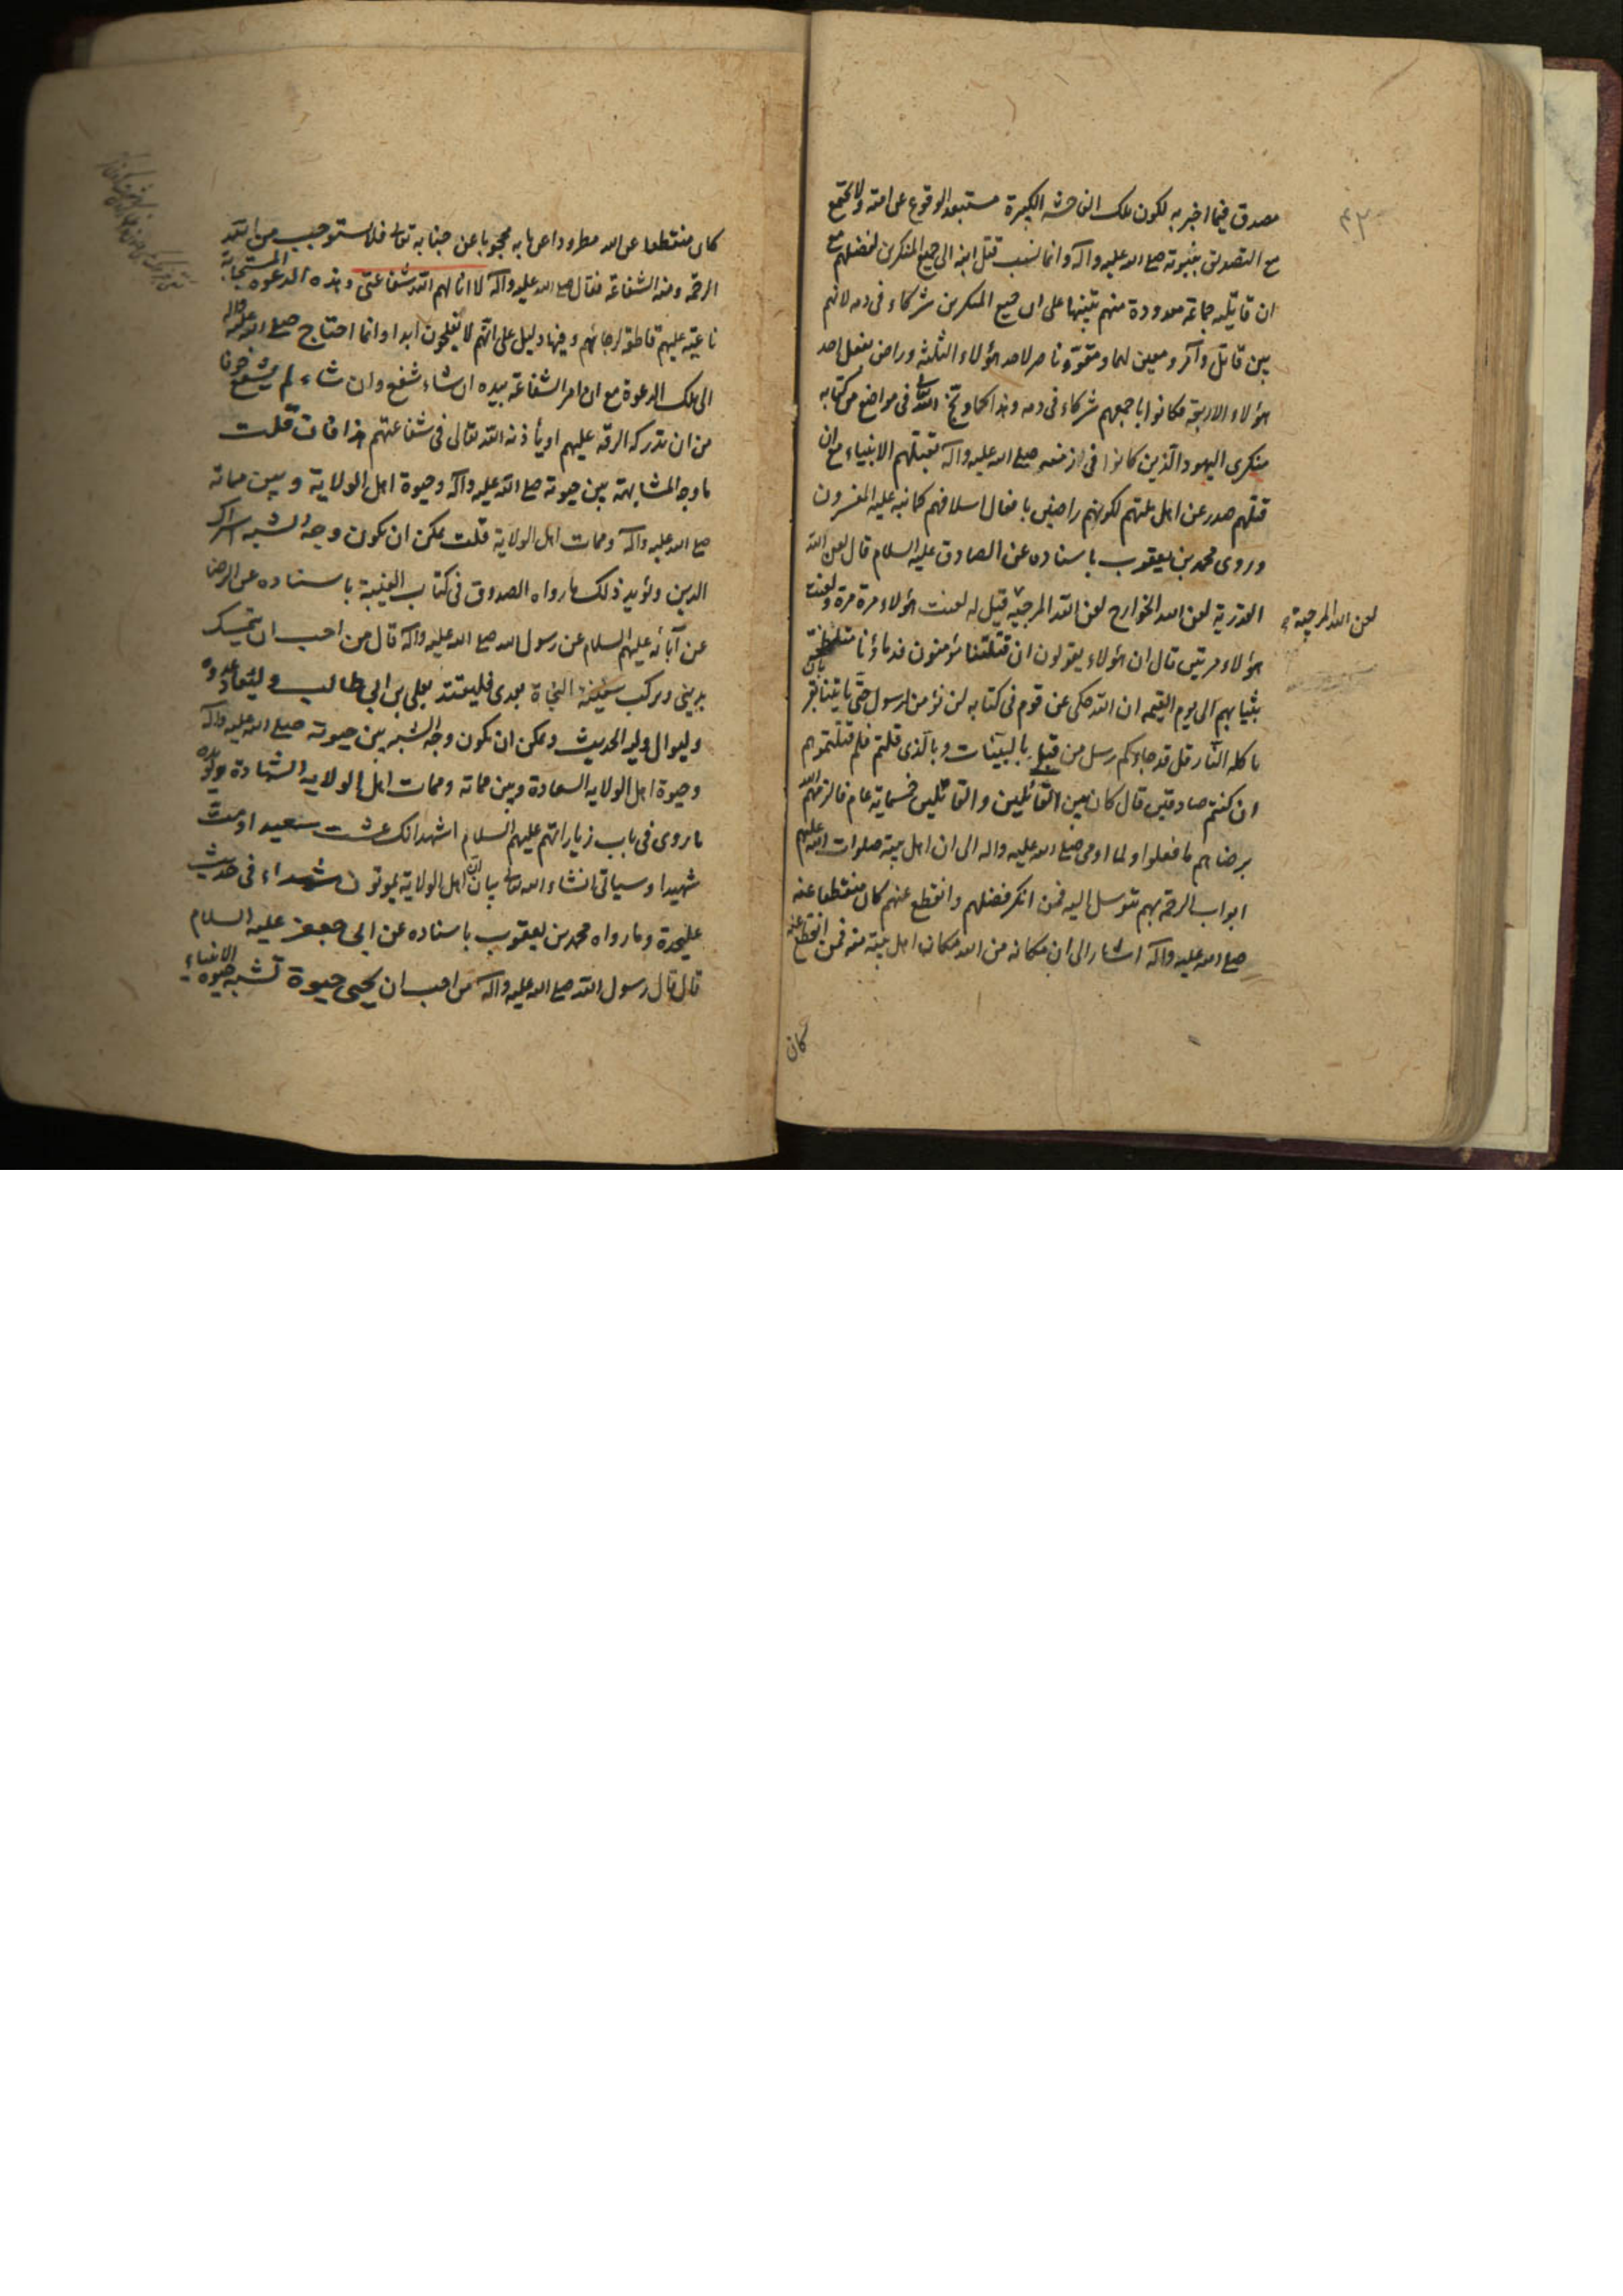 مصدق فيما اخبر به لكون تلك الفاحشة الكبيرة مستبعد الوقوع عن امته ولا تجتمع
مع التصديق بنبوته صلى الله عليه وآله وانما نسب قتل ابنه الى جميع المنكرين لفضلهم مع
ان قاتليه جماعة معدودة منهم تنبيها على ان جميع المنكرين شركاء في دمه لانهم
بين قاتل وآمر ومعين لهما ومقوّ وناصر لاحد هؤلاء الثلثة وراض بفعل احد
هؤلاء الاربعة فكانوا باجمعهم شركاء في دمه وهذا كما وبّخ الله تعالى في مواضع من كتابه
منكرى اليهود الذين كانوا في زمنه صلى الله عليه وآله بقتلهم الانبياء مع ان
قتلهم صدر عن اهل ملتهم لكونهم راضين بافعال اسلافهم كما نبه عليه المفسرون
وروى محمد بن يعقوب باسناده عن الصادق عليه السلام قال لعن الله
القدرية لعن الله الخوارج لعن الله المرجئة قيل له لعنت هؤلاء مرة مرة ولعنت
لعن الله المرجئة
هؤلاء مرتين قال ان هؤلاء يقولون ان قتلتنا مؤمنون فدماؤنا متلطخة
بثيابهم الى يوم القيمه ان الله حكى عن قوم في كتابه لن نؤمن لرسول حتى يأتينا بقربان
تاكله النار قل قد جاءكم رسل من قبلى بالبينات وبالذى قلتم فلم قتلتموهم
ان كنتم صادقين قال كان بين القائلين والقاتلين خمسماية عام فالزمهم الله
برضاهم ما فعلوا ولما اومى صلى الله عليه واله الى ان اهل بيته صلوات الله عليهم
ابواب الرحمة بهم يتوسل اليه فمن انكر فضلهم وانقطع عنهم كان منقطعا عنه
صلى الله عليه وآله اشار الى ان مكانه من الله مكان اهل بيته منه فمن انقطع عنه
كان
كان منقطعا عن الله مطرودا عن بابه محجوبا عن جنابه تعالى فلا يستوجب من الله
الرحمة ومنه الشفاعة فقال صلى الله عليه وآله لا انالهم الله شفاعتى وهذه الدعوة المستجابة
ناعية عليهم قاطعة لرجائهم وفيها دليل على انهم لا يفلحون ابدا وانما احتاج صلى الله عليه واله
الى تلك الدعوة مع ان امر الشفاعة بيده ان شاء شفع وان شاء لم يشفع خوفا
من ان تدركه الرقة عليهم او يأذنه الله تعالى في شفاعتهم هذا فان قلت
ما وجه المشابهة بين حيوته صلى الله عليه وآله وحيوة اهل الولاية وبين مماته
صلى الله عليه وآله وممات اهل الولاية قلت يمكن ان يكون وجه الشبه اشراك
الدين ويؤيد ذلك ما رواه الصدوق في كتاب الغيبة باسناده عن الرضا
عن آبائه عليهم السلام عن رسول الله صلى الله عليه وآله قال من احب ان يتمسك
بدينى ويركب سفينة النجاة بعدى فليقتد بعلى بن ابي طالب وليعاد عدوه
وليوال وليه الحديث ويمكن ان يكون وجه الشبه بين حيوته صلى الله عليه وآله
وحيوة اهل الولاية السعادة وبين مماته وممات اهل الولاية الشهادة ويؤيده
ما روى في باب زياراتهم عليهم السلام اشهد انك عشت سعيدا ومت
شهيدا وسياتى انشاء الله تعالى بيان ان اهل الولاية يموتون شهداء في حديث
عليحدة وما رواه محمد بن يعقوب باسناده عن ابى جعفر عليه السلام
قال قال رسول الله صلى الله عليه وآله من احب ان يحيى حيوة تشبه حيوة الانبياء